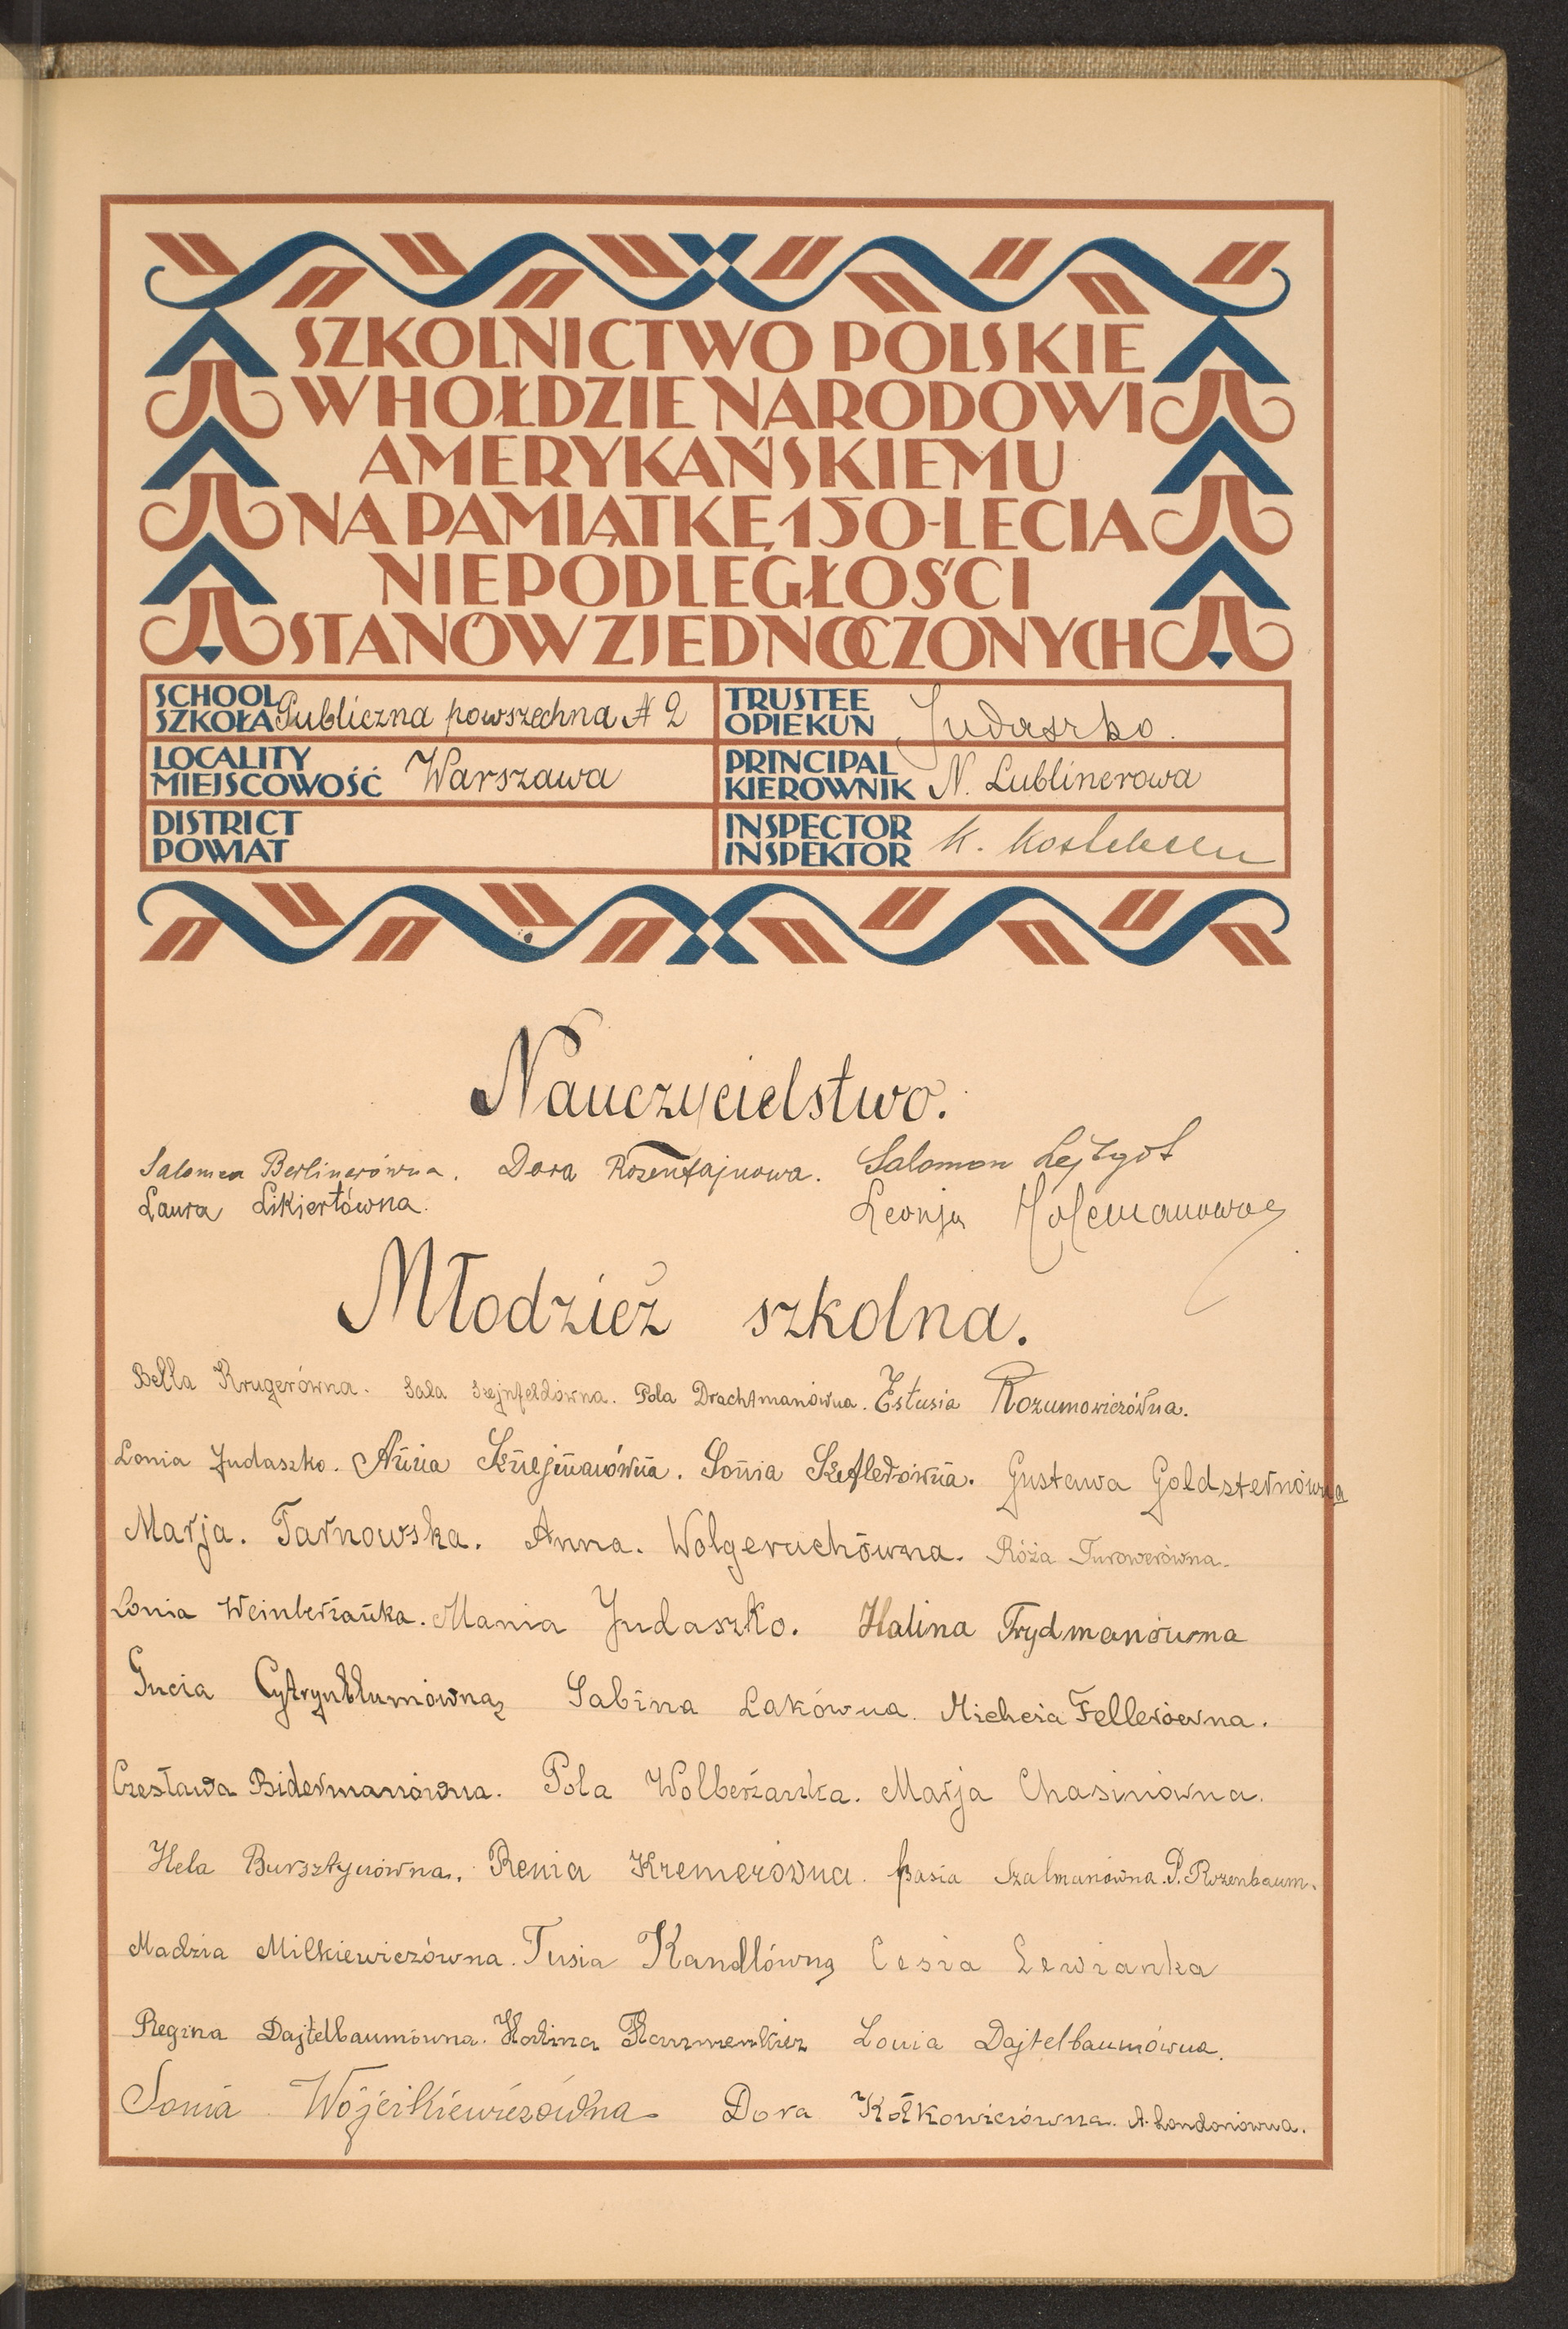 SZKOLNICTWO POLSKIE
W HOŁDZIE NARODOWI
AMERYKAŃSKIEMU
NA PAMIĄTKĘ 150-LECIA
NIEPODLEGŁOŚCI
STANÓW ZJEDNOCZONYCH
SCHOOL
SZKOŁA Publiczna powszechna № 2
TRUSTEE
OPIEKUN Judaszko.
LOCALITY
MIEJSCOWOŚĆ Warszawa
PRINCIPAL
KIEROWNIK N. Lublinerowa
DISTRICT
POWIAT
INSPECTOR
INSPEKTOR K.
Nauczycielstwo.
Salomea Berlinerówna. Dora Rozensztajnowa. Salomon Lejzgot
Laura Likiertówna. Leonja
Młodzież szkolna.
Bella Krugerówna. Sala Szejnfeldówna. Pola Drachtmanówna. Estusia Rozumowiczówna.
Lonia Judaszko. Ania Sznejmanówna. Sonia Szeflerówna. Gustawa Goldszternówna
Marja. Tarnowska. Anna. Wolgeruchówna. Róża Turowerówna.
Lonia Weinberżanka. Mania Judaszko. Halina Frydmanówna
Gucia Cytrynblumówna Sabina Lakówna. Miecia Fellerówna.
Czesława Bidermanówna. Pola Wolberżanka. Marja Chasinówna.
Hela Bursztynówna. Renia Kremerówna. Basia Szalmanówna. P. Rozenbaum.
Madzia Milkiewiczówna. Tusia Kandlówna Cesia Lewianka
Regina Dajtelbaumówna. Halina Lonia Dajtelbaumówna.
Sonia Wójcikiewiczówna. Dora Kółkowiczówna. A. Londonówna.